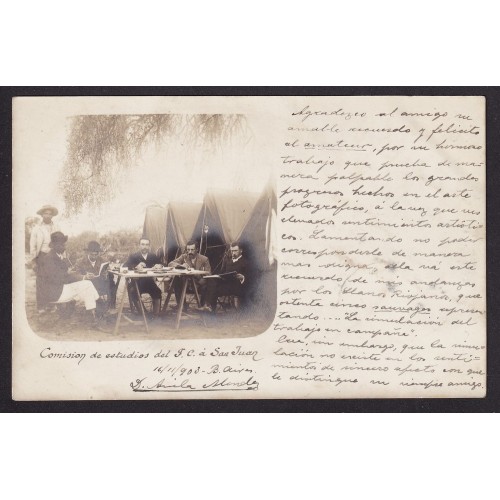 Agradezco al amigo su
amable recuerdo y felicito
al amateur, por un hermoso
trabajo que prueba de ma-
nera palpable los grandes
progresos hechos en el arte
fotográfico, á la vez que sus
elevados sentimientos artísti-
cos. Lamentando no poder
corresponderle de manera
mas digna, allá vá este
recuerdo de mis andanzas
por los llanos riojanos, que
ostenta cinco sauvages represen-
tando... "La simulacion del
trabajo en campaña".
Crea, sin embargo, que la simu-
lación no existe en los senti-
mientos de sincero afecto con que
le distingue su siempre amigo.
Comision de estudios del F.C. á San Juan
16/11/902 - B. Aires.
D. Avila Mendez